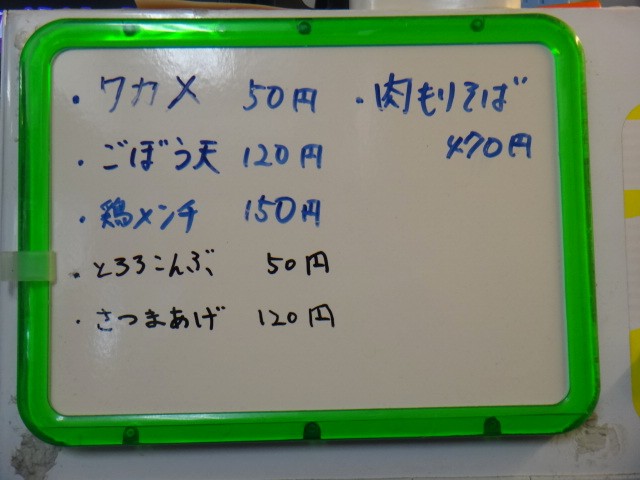 ・ワカメ 50円
・ごぼう天 120円
・鶏メンチ 150円
・とろろこんぶ 50円
・さつまあげ 120円
・肉もりそば
470円